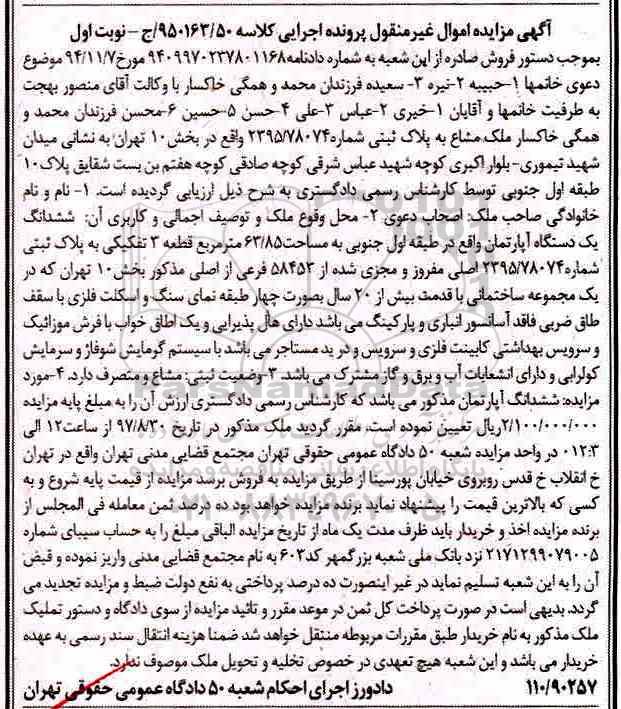 آگهی مزایده اموال غیرمنقول پرونده اجرایی کلاسه ۹۵۰۱۶۳/۵۰/ج - نوبت اول
بموجب دستور فروش صادره از این شعبه به شماره دادنامه ۹۴۰۹۹۷۰۲۳۷۸۰۱۱۶۸ مورخ ۹۴/۱۱/۷ موضوع
دعوی خانمها ۱-حبیبه ۲-نیره ۳- سعیده فرزندان محمد و همگی خاکسار با وکالت آقای منصور بهجت
به طرفیت خانمها و آقایان ۱-خیری ۲-عباس ۳-علی ۴-حسن ۵-حسین ۶-محسن فرزندان محمد و
همگی خاکسار ملک مشاع به پلاک ثبتی شماره ۲۳۹۵/۷۸۰۷۴ واقع در بخش ۱۰ تهران به نشانی میدان
شهید تیموری- بلوار اکبری کوچه شهید عباس شرقی کوچه صادقی کوچه هفتم بن بست شقایق پلاک ۱۰
طبقه اول جنوبی توسط کارشناس رسمی دادگستری به شرح ذیل ارزیابی گردیده است. ۱- نام و نام
خانوادگی صاحب ملک: اصحاب دعوی ۲- محل وقوع ملک و توصیف اجمالی و کاربری آن: ششدانگ
یک دستگاه آپارتمان واقع در طبقه اول جنوبی به مساحت ۶۳/۸۵ مترمربع قطعه ۳ تفکیکی به پلاک ثبتی
شماره ۲۳۹۵/۷۸۰۷۴ اصلی مفروز و مجزی شده از ۵۸۴۵۳ فرعی از اصلی مذکور بخش ۱۰ تهران که در
یک مجموعه ساختمانی با قدمت بیش از ۲۰ سال بصورت چهار طبقه نمای سنگ و اسکلت فلزی با سقف
طاق ضربی فاقد آسانسور انباری و پارکینگ می باشد دارای هال پذیرایی و یک اطاق خواب با فرش موزائیک
و سرویس بهداشتی کابینت فلزی و سرویس و در ید مستاجر می باشد با سیستم گرمایش شوفاژ و سرمایش
کولرآبی و دارای انشعابات آب و برق و گاز مشترک می باشد. ۳-وضعیت ثبتی: مشاع و متصرف دارد. ۴-مورد
مزایده: ششدانگ آپارتمان مذکور می باشد که کارشناس رسمی دادگستری ارزش آن را به مبلغ پایه مزایده
۲/۱۰۰/۰۰۰/۰۰۰ ریال تعیین نموده است. مقرر گردید ملک مذکور در تاریخ ۹۷/۸/۳۰ از ساعت ۱۲ الی
۱۲:۳۰ در واحد مزایده شعبه ۵۰ دادگاه عمومی حقوقی تهران مجتمع قضایی مدنی تهران واقع در تهران
خ انقلاب خ قدس روبروی خیابان پورسینا از طریق مزایده به فروش برسد مزایده از قیمت پایه شروع و به
کسی که بالاترین قیمت را پیشنهاد نماید برنده مزایده خواهد بود ده درصد ثمن معامله فی المجلس از
برنده مزایده اخذ و خریدار باید ظرف مدت یک ماه از تاریخ مزایده الباقی مبلغ را به حساب سیبای شماره
۲۱۷۱۲۹۹۰۷۹۰۰۵ نزد بانک ملی شعبه بزرگمهر کد ۶۰۳ به نام مجتمع قضایی مدنی واریز نموده و قبض
آن را به این شعبه تسلیم نماید در غیر اینصورت ده درصد پرداختی به نفع دولت ضبط و مزایده تجدید می
گردد. بدیهی است در صورت پرداخت کل ثمن در موعد مقرر و تائید مزایده از سوی دادگاه و دستور تملیک
ملک مذکور به نام خریدار طبق مقررات مربوطه منتقل خواهد شد ضمنا هزینه انتقال سند رسمی به عهده
خریدار می باشد و این شعبه هیچ تعهدی در خصوص تخلیه و تحویل ملک موصوف ندارد.
۱۱۰/۹۰۲۵۷ دادورز اجرای احکام شعبه ۵۰ دادگاه عمومی حقوقی تهران